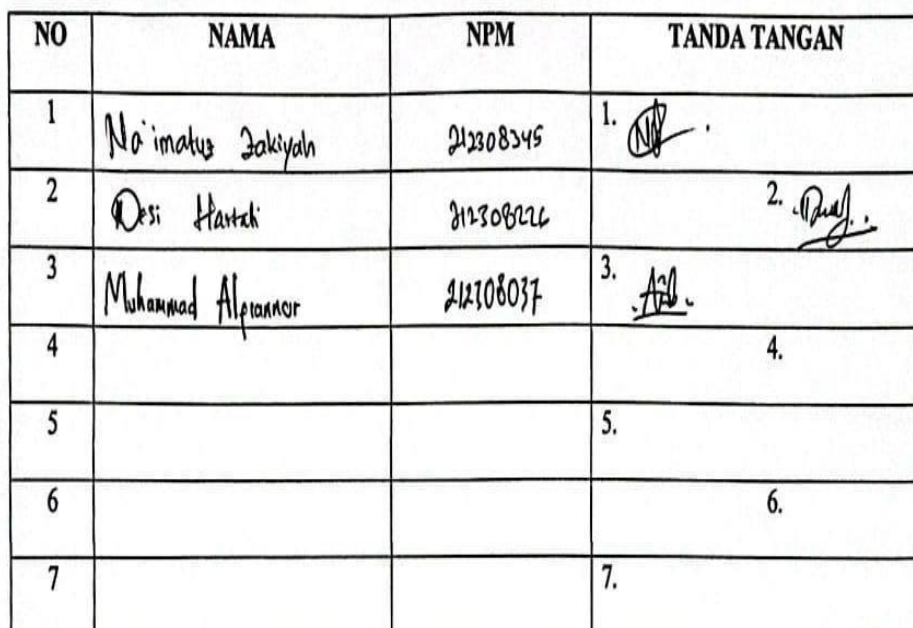 NO NAMA NPM TANDA TANGAN
1 Na'imatuz Zakiyah 212308345 1.
2 Desi Hartati 212308226 2.
3 Muhammad 212308037 3.
4 4.
5 5.
6 6.
7 7.